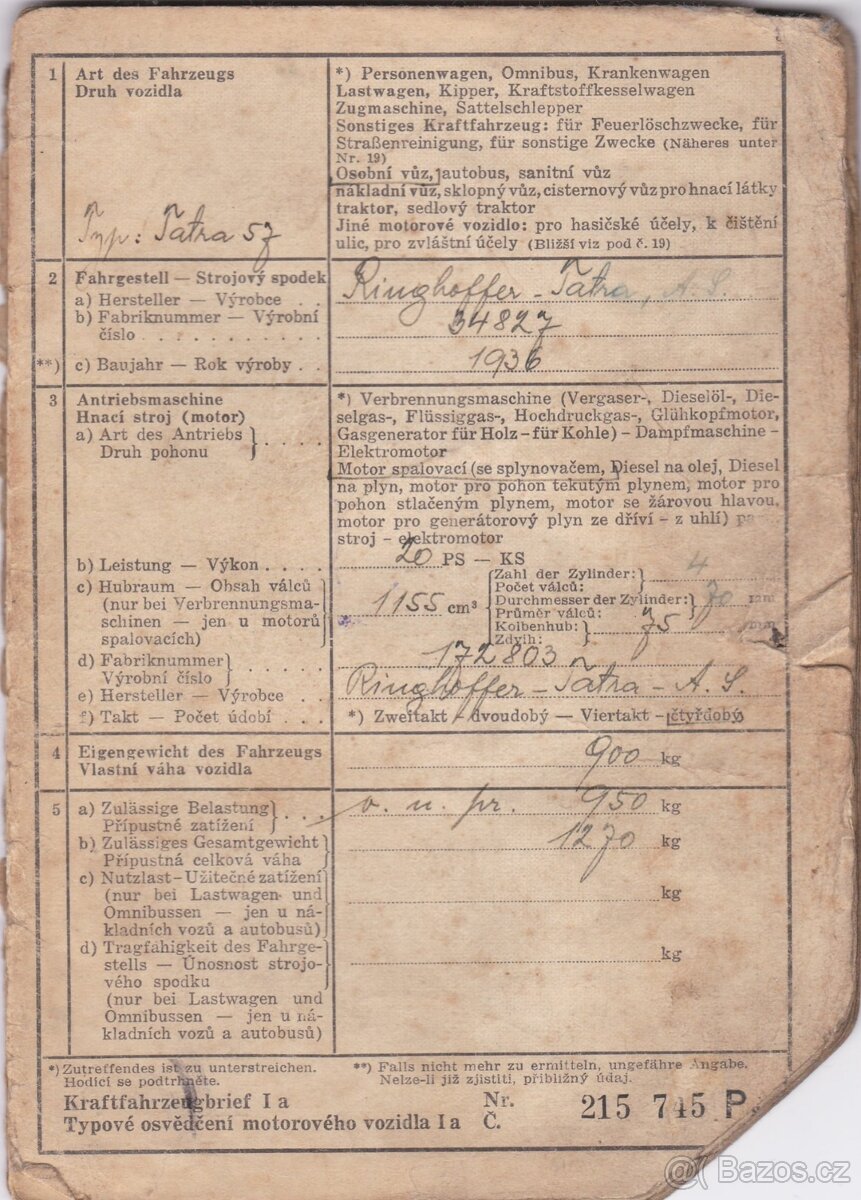 1 Art des Fahrzeugs
Druh vozidla
Typ: Tatra 57
*) Personenwagen, Omnibus, Krankenwagen
Lastwagen, Kipper, Kraftstoffkesselwagen
Zugmaschine, Sattelschlepper
Sonstiges Kraftfahrzeug: für Feuerlöschzwecke, für
Straßenreinigung, für sonstige Zwecke (Näheres unter
Nr. 19)
Osobní vůz, autobus, sanitní vůz
nákladní vůz, sklopný vůz, cisternový vůz pro hnací látky
traktor, sedlový traktor
Jiné motorové vozidlo: pro hasičské účely, k čištění
ulic, pro zvláštní účely (Bližší viz pod č. 19)
2 Fahrgestell — Strojový spodek
a) Hersteller — Výrobce . . Ringhoffer - Tatra, A. S.
b) Fabriknummer — Výrobní
číslo . . . . . . . . . . . 34827
**) c) Baujahr — Rok výroby . . 1936
3 Antriebsmaschine
Hnací stroj (motor)
a) Art des Antriebs
Druh pohonu
*) Verbrennungsmaschine (Vergaser-, Dieselöl-, Die-
selgas-, Flüssiggas-, Hochdruckgas-, Glühkopfmotor,
Gasgenerator für Holz - für Kohle) - Dampfmaschine -
Elektromotor
Motor spalovací (se splynovačem, Diesel na olej, Diesel
na plyn, motor pro pohon tekutým plynem, motor pro
pohon stlačeným plynem, motor se žárovou hlavou,
motor pro generátorový plyn ze dříví - z uhlí)
stroj - elektromotor
b) Leistung — Výkon . . . . 20 PS — KS
c) Hubraum — Obsah válců
(nur bei Verbrennungsma-
schinen — jen u motorů
spalovacích)
1155 cm³
Zahl der Zylinder:
Počet válců: 4
Durchmesser der Zylinder:
Průměr válců: 70 mm
Kolbenhub:
Zdvih: 75 mm
d) Fabriknummer
Výrobní číslo 172803
e) Hersteller — Výrobce . . Ringhoffer - Tatra - A. S.
f) Takt — Počet údobí . . . *) Zweitakt - dvoudobý — Viertakt - čtyřdobý
4 Eigengewicht des Fahrzeugs
Vlastní váha vozidla 900 kg
5 a) Zulässige Belastung
Přípustné zatížení . . . o. u. pr. 950 kg
b) Zulässiges Gesamtgewicht
Přípustná celková váha 1270 kg
c) Nutzlast - Užitečné zatížení
(nur bei Lastwagen und
Omnibussen — jen u ná-
kladních vozů a autobusů) kg
d) Tragfähigkeit des Fahrge-
stells — Únosnost strojo-
vého spodku
(nur bei Lastwagen und
Omnibussen — jen u ná-
kladních vozů a autobusů) kg
*) Zutreffendes ist zu unterstreichen.
Hodící se podtrhněte.
**) Falls nicht mehr zu ermitteln, ungefähre Angabe.
Nelze-li již zjistiti, přibližný údaj.
Kraftfahrzeugbrief I a
Typové osvědčení motorového vozidla I a
Nr.
Č. 215 745 P
Bazos.cz